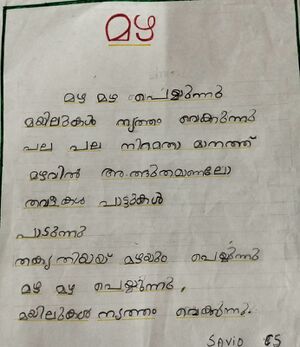 മഴ
മഴ മഴ പെയ്യുന്നു
മയിലുകൾ നൃത്തം വെക്കുന്നു
പല പല നിറമതാ മാനത്ത്
മഴവിൽ അത്ഭുതമാണലോ
തവളകൾ പാട്ടുകൾ
പാടുന്നു
തിയായ് മഴയും പെയ്യുന്നു
മഴ മഴ പെയ്യുന്നു,
മയിലുകൾ നൃത്തം വെക്കുന്നു.
SAVIO